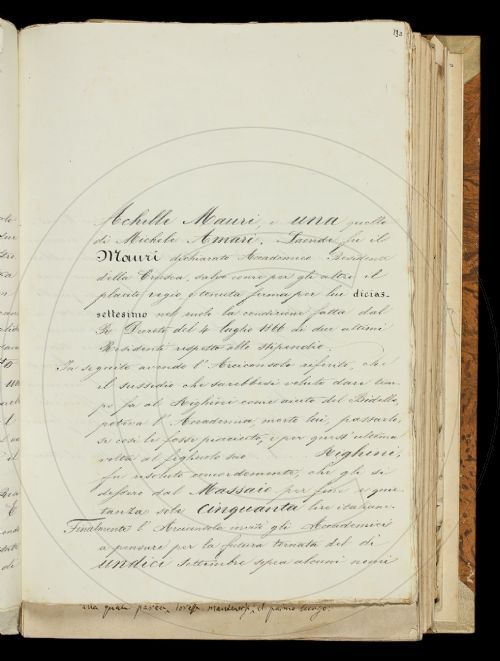 Achille Mauri, e una quella
di Michele Amari. Laonde fu il
Mauri dichiarato Accademico Residente
della Crusca, salvo come per gli altri il
placito regio e tenuta ferma per lui dicias-
settesimo nel ruolo la condizione fatta dal
R. Decreto del 4 luglio 1866 ai due ultimi
Residenti rispetto allo stipendio.
In seguito avendo l'Arciconsolo riferito, che
il sussidio che sarebbesi voluto dare tem-
po fa al Righini come aiuto del Bidello,
poteva l'Accademia, morto lui, passarlo,
se così le fosse piaciuto, e per quest'ultima
volta al figliuolo suo Righini,
fu risoluto concordemente, che gli si
dessero dal Massaio per fine e quie-
tanza sole cinquanta lire italiane.
Finalmente l'Arciconsolo invitò gli Accademici
a pensare per la futura tornata del dì
undici Settembre sopra alcuni nomi
alla quale parrà, dovesse mantenersi, il primo luogo.